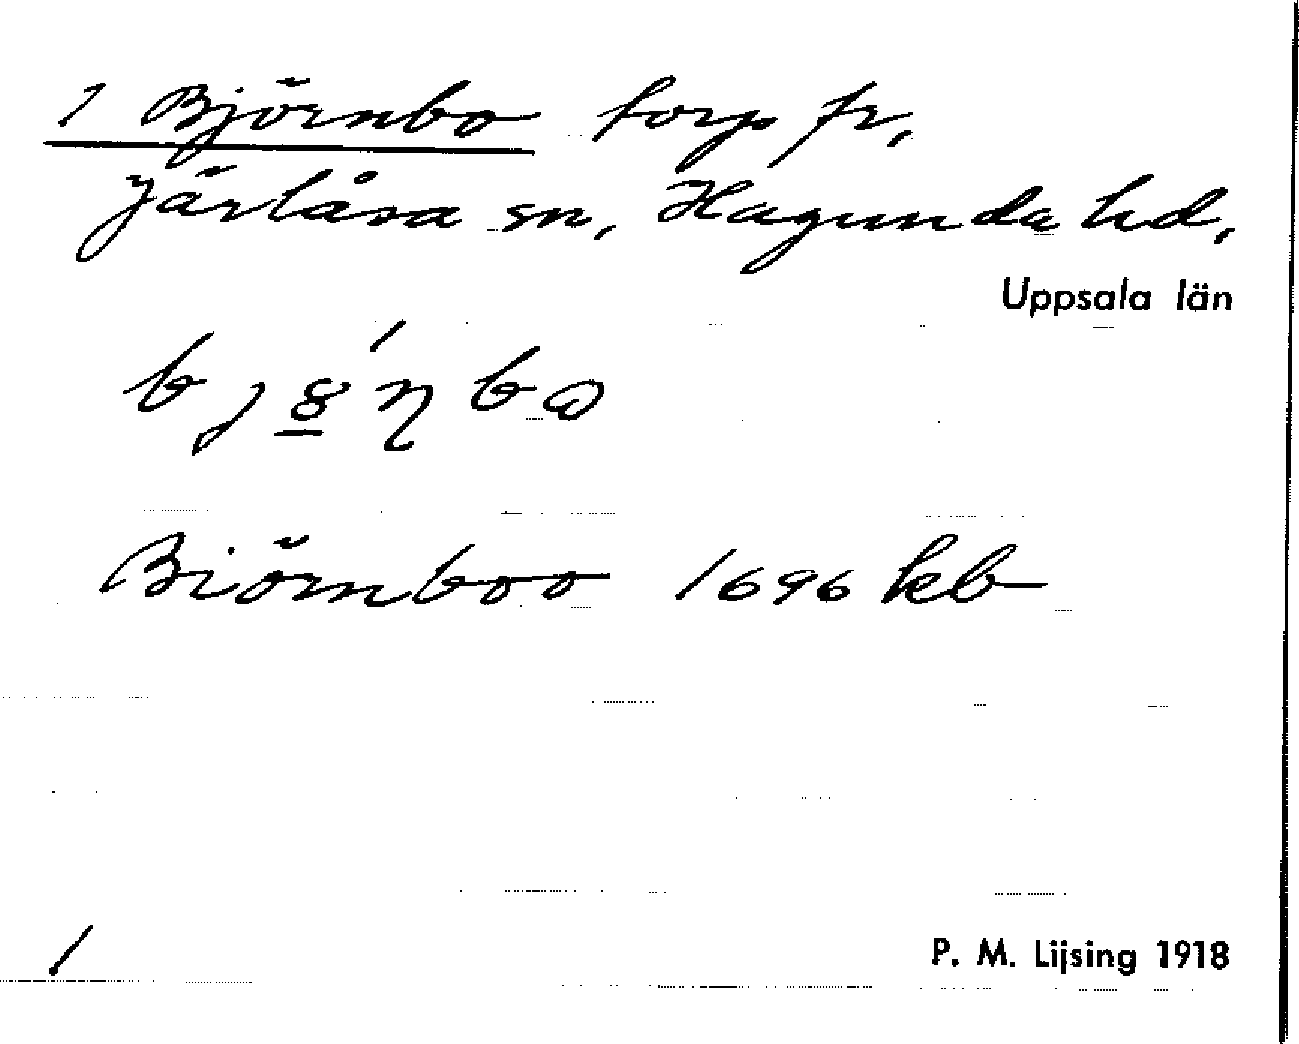 1 Björnbo torp fr,
Järlåsa sn, Hagunda hd,
Uppsala län
Biörnboo 1696 kb
1
P. M. Lijsing 1918